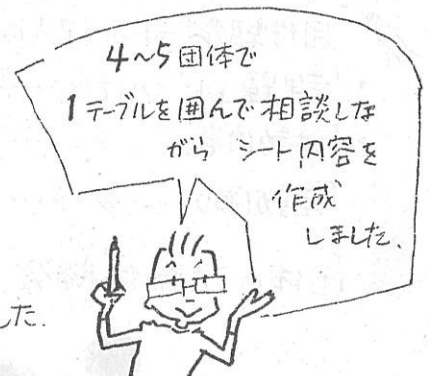 4～5団体で
1テーブルを囲んで相談しな
がら シート内容を
作成
しました.
した.